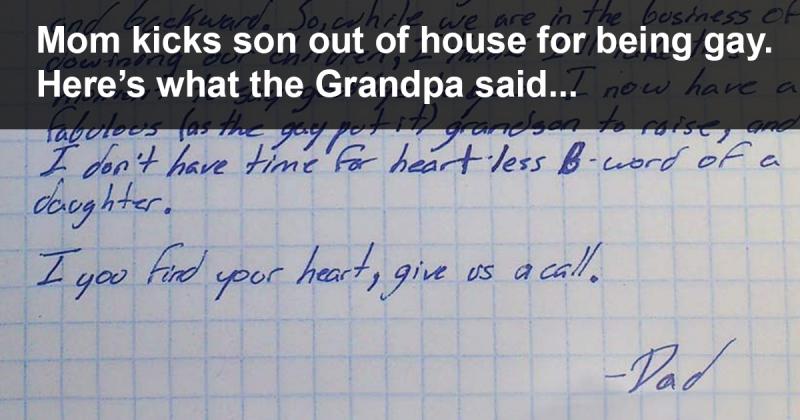 and backward. So, while we are in the business of
Mom kicks son out of house for being gay.
our children, I
Here's what the Grandpa said...
I now have a
fabulous (as the gay put it) grandson to raise, and
I don't have time for heart-less B-word of a
daughter.
I you find your heart, give us a call.
-Dad